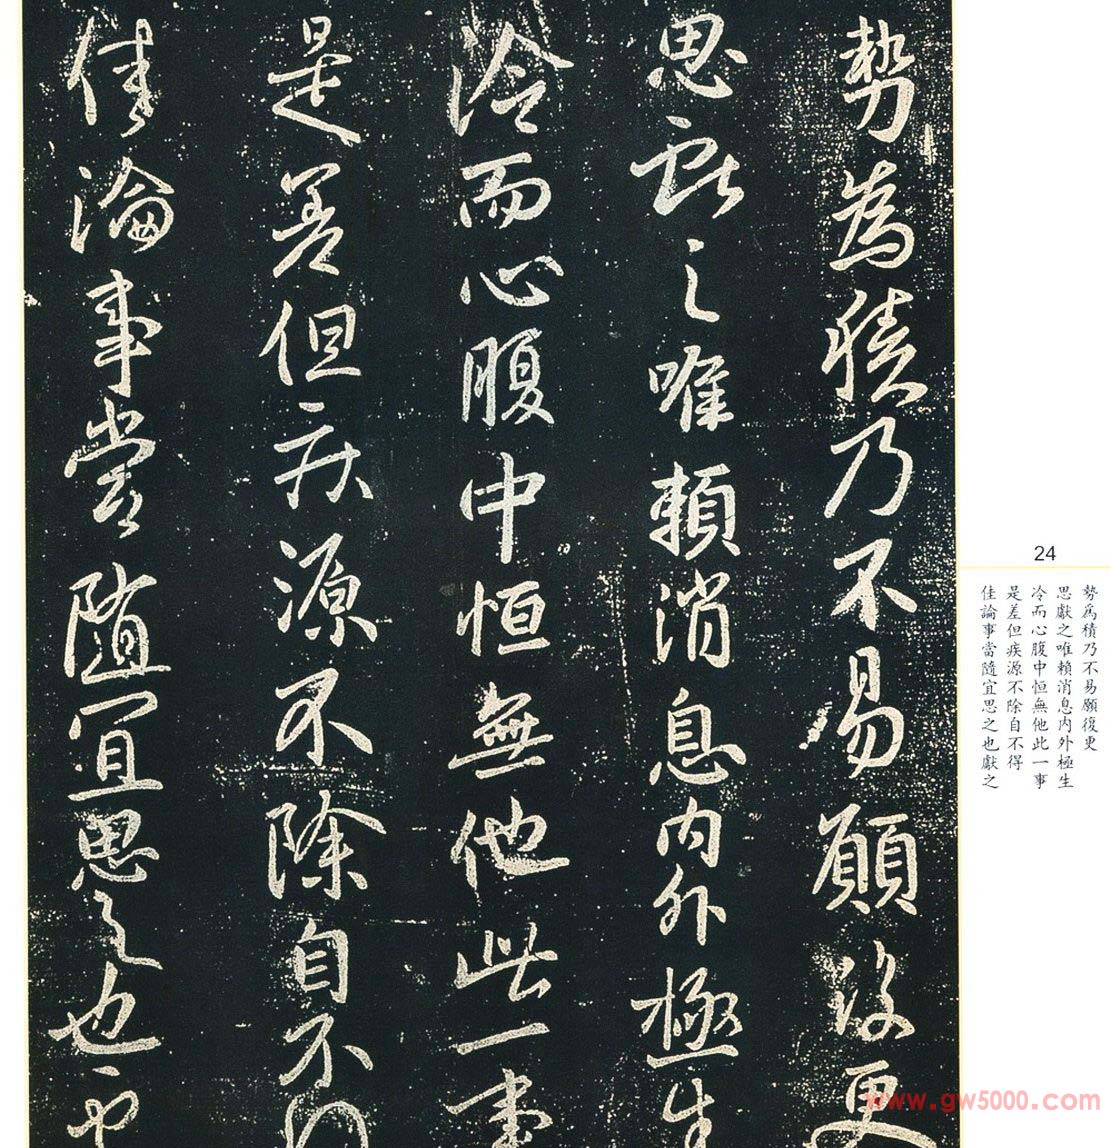 勢為積乃不易願復更
思獻之唯賴消息内外極生
冷而心腹中恒無他此一事
是差但疾源不除自不
佳論事當隨宜思之也
24
勢爲積乃不易願復更
思獻之唯賴消息内外極生
冷而心腹中恒無他此一事
是差但疾源不除自不得
佳論事當隨宜思之也獻之
www.gw5000.com